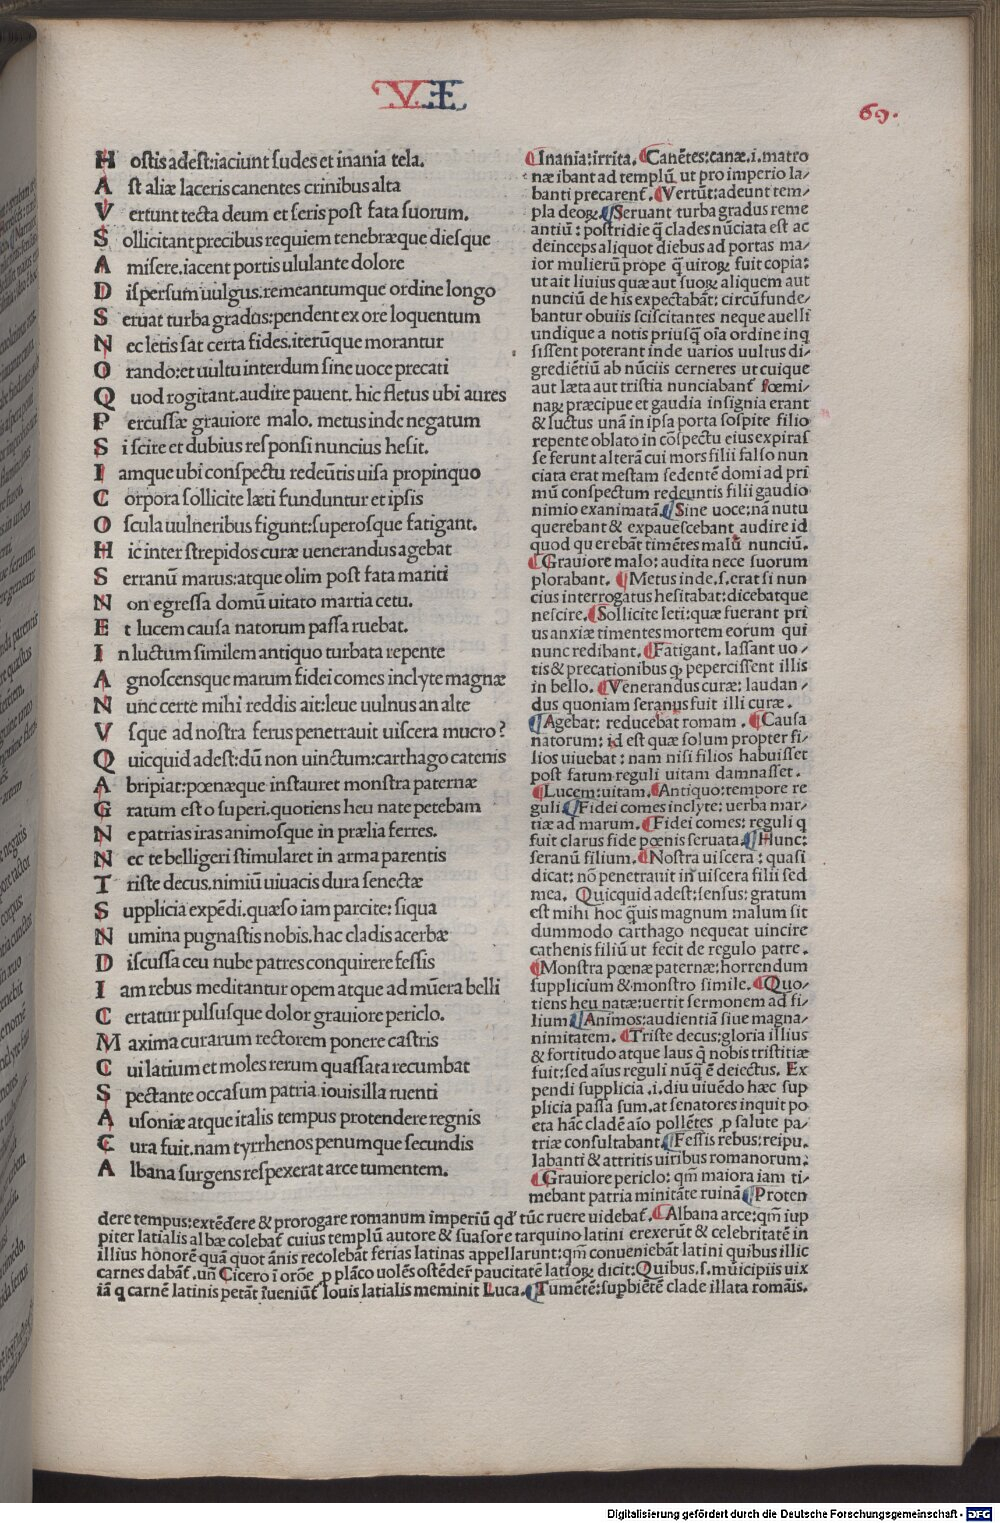 VI
69.
H ostis adest: iaciunt sudes et inania tela.
A st aliæ laceris canentes crinibus alta
V ertunt tecta deum et feris post fata suorum.
S ollicitant precibus requiem tenebræque diesque
A misere. iacent portis ululante dolore
D ispersum uulgus. remeantumque ordine longo
S eruat turba gradus: pendent ex ore loquentum
N ec letis sat certa fides. iterũque morantur
O rando: et uultu interdum sine uoce precati
Q uod rogitant. audire pauent. hic fletus ubi aures
P ercussæ grauiore malo. metus inde negatum
S i scire et dubius responsi nuncius hesit.
I amque ubi conspectu redeũtis uisa propinquo
C orpora sollicite læti funduntur et ipsis
O scula uulneribus figunt: superosque fatigant.
H ic inter strepidos curæ uenerandus agebat
S erranũ marus: atque olim post fata mariti
N on egressa domũ uitato martia cetu.
E t lucem causa natorum passa ruebat.
I n luctum similem antiquo turbata repente
A gnoscensque marum fidei comes inclyte magnæ
N unc certe mihi reddis ait: leue uulnus an alte
V sque ad nostra ferus penetrauit uiscera mucro?
Q uicquid adest: dũ non uinctum: carthago catenis
A bripiat: pœnæque instauret monstra paternæ
G ratum est o superi. quotiens heu nate petebam
N e patrias iras animosque in prælia ferres.
N ec te belligeri stimularet in arma parentis
T riste decus. nimiũ uiuacis dura senectæ
S upplicia expẽdi. quæso iam parcite: siqua
N umina pugnastis nobis. hac cladis acerbæ
D iscussa ceu nube patres conquirere fessis
I am rebus meditantur opem atque ad mũera belli
C ertatur pulsusque dolor grauiore periclo.
M axima curarum rectorem ponere castris
C ui latium et moles rerum quassata recumbat
S pectante occasum patria iouis illa ruenti
A usoniæ atque italis tempus protendere regnis
C ura fuit. nam tyrrhenos penumque secundis
A lbana surgens respexerat arce tumentem.
¶Inania: irrita. ¶Canẽtes: canæ .i. matro
næ ibant ad templũ ut pro imperio la/
banti precarent᷒. ¶Vertũt: adeunt tem/
pla deoꝝ. ¶Seruant turba gradus reme
antiũ: postridie q̃ clades nũciata est ac
deinceps aliquot diebus ad portas ma/
ior mulierũ prope q̃ uiroꝝ fuit copia:
ut ait liuius quæ aut suoꝝ aliquem aut
nunciũ de his expectabãt: circũfunde/
bantur obuiis sciscitantes neque auelli
undique a notis priusq̃ oĩa ordine inq
sissent poterant inde uarios uultus di/
grediẽtiũ ab nũciis cerneres ut cuique
aut læta aut tristia nunciabant᷒ fœmi/
naꝝ præcipue et gaudia insignia erant
& luctus unã in ipsa porta sospite filio
repente oblato in cõspectu eius expiras
se ferunt alterã cui mors filii falso nun
ciata erat mestam sedentẽ domi ad pri
mũ conspectum redeuntis filii gaudio
nimio exanimatã. ¶Sine uoce: nã nutu
querebant & expauescebant audire id
quod querebãt timẽtes malũ nunciũ.
¶Grauiore malo: audita nece suorum
plorabant. ¶Metus inde .s. erat si nun
cius interrogatus hesitabat: dicebatque
nescire. ¶Sollicite leti: quæ fuerant pri
us anxiæ timentes mortem eorum qui
nunc redibant. ¶Fatigant. lassant uo/
tis & precationibus ꝙ pepercissent illis
in bello. ¶Venerandus curæ: laudan/
dus quoniam seranus fuit illi curæ.
¶Agebat: reducebat romam. ¶Causa
natorum: id est quæ solum propter fi/
lios uiuebat: nam nisi filios habuisset
post fatum reguli uitam damnasset.
¶Lucem: uitam. ¶Antiquo: tempore re
guli ¶Fidei comes inclyte: uerba mar/
tiæ ad marum. ¶Fidei comes: reguli q
fuit clarus fide pœnis seruata. ¶Hunc:
seranũ filium. ¶Nostra uiscera: quasi
dicat: nõ penetrauit in uiscera filii sed
mea. Quicquid adest: sensus: gratum
est mihi hoc q̃uis magnum malum sit
dummodo carthago nequeat uincire
cathenis filiũ ut fecit de regulo patre.
¶Monstra pœnæ paternæ: horrendum
supplicium & monstro simile. ¶Quo/
tiens heu natæ: uertit sermonem ad fi/
lium ¶Animos: audientiã siue magna/
nimitatem. ¶Triste decus: gloria illius
& fortitudo atque laus q̃ nobis tristitiæ
fuit: sed aius reguli nũq̃ ẽ deiectus. Ex
pendi supplicia .i. diu uiuẽdo hæc sup
plicia passa sum. at senatores inquit po
eta hãc cladẽ aĩo pollẽtes ꝓ salute pa/
triæ consultabant ¶Fessis rebus: reipu.
labanti & attritis uiribus romanorum:
¶Grauiore periclo: qm̃ maiora iam ti/
mebant patria minitãte ruinã ¶Proten
dere tempus: extẽdere & prorogare romanum imperiũ qd᷒ tũc ruere uidebat᷒. ¶Albana arce: qm̃ iup
piter latialis albæ colebat᷒ cuius templũ autore & suasore tarquino latini erexerũt & celebritatẽ in
illius honorẽ quã quot ãnis recolebãt ferias latinas appellarunt: qm̃ conueniebãt latini quibus illic
carnes dabãt᷒. uñ Cicero ĩ orõe ꝓ plãco uolẽs ostẽder̃ paucitatẽ latioꝝ dicit: Quibus .s. mũicipiis uix
iã q carnẽ latinis petãt ĩueniũt᷒ Iouis latialis meminit Luca. ¶Tumẽtẽ: supbiẽtẽ clade illata romãis.
Digitalisierung gefördert durch die Deutsche Forschungsgemeinschaft - DFG